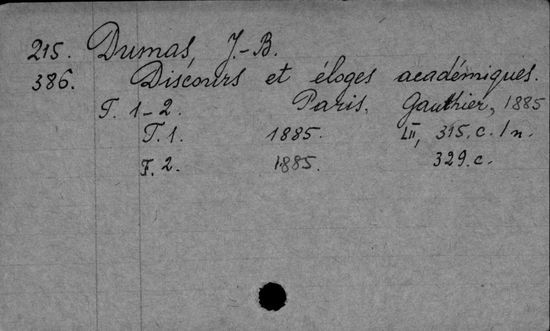 215. Dumas, J.-B.
386. Discours et éloges académiques.
T. 1-2. Paris, Gauthier, 1885
T. 1. 1885. LII, 315. c. 1 п.
T. 2. 1885. 329. c.